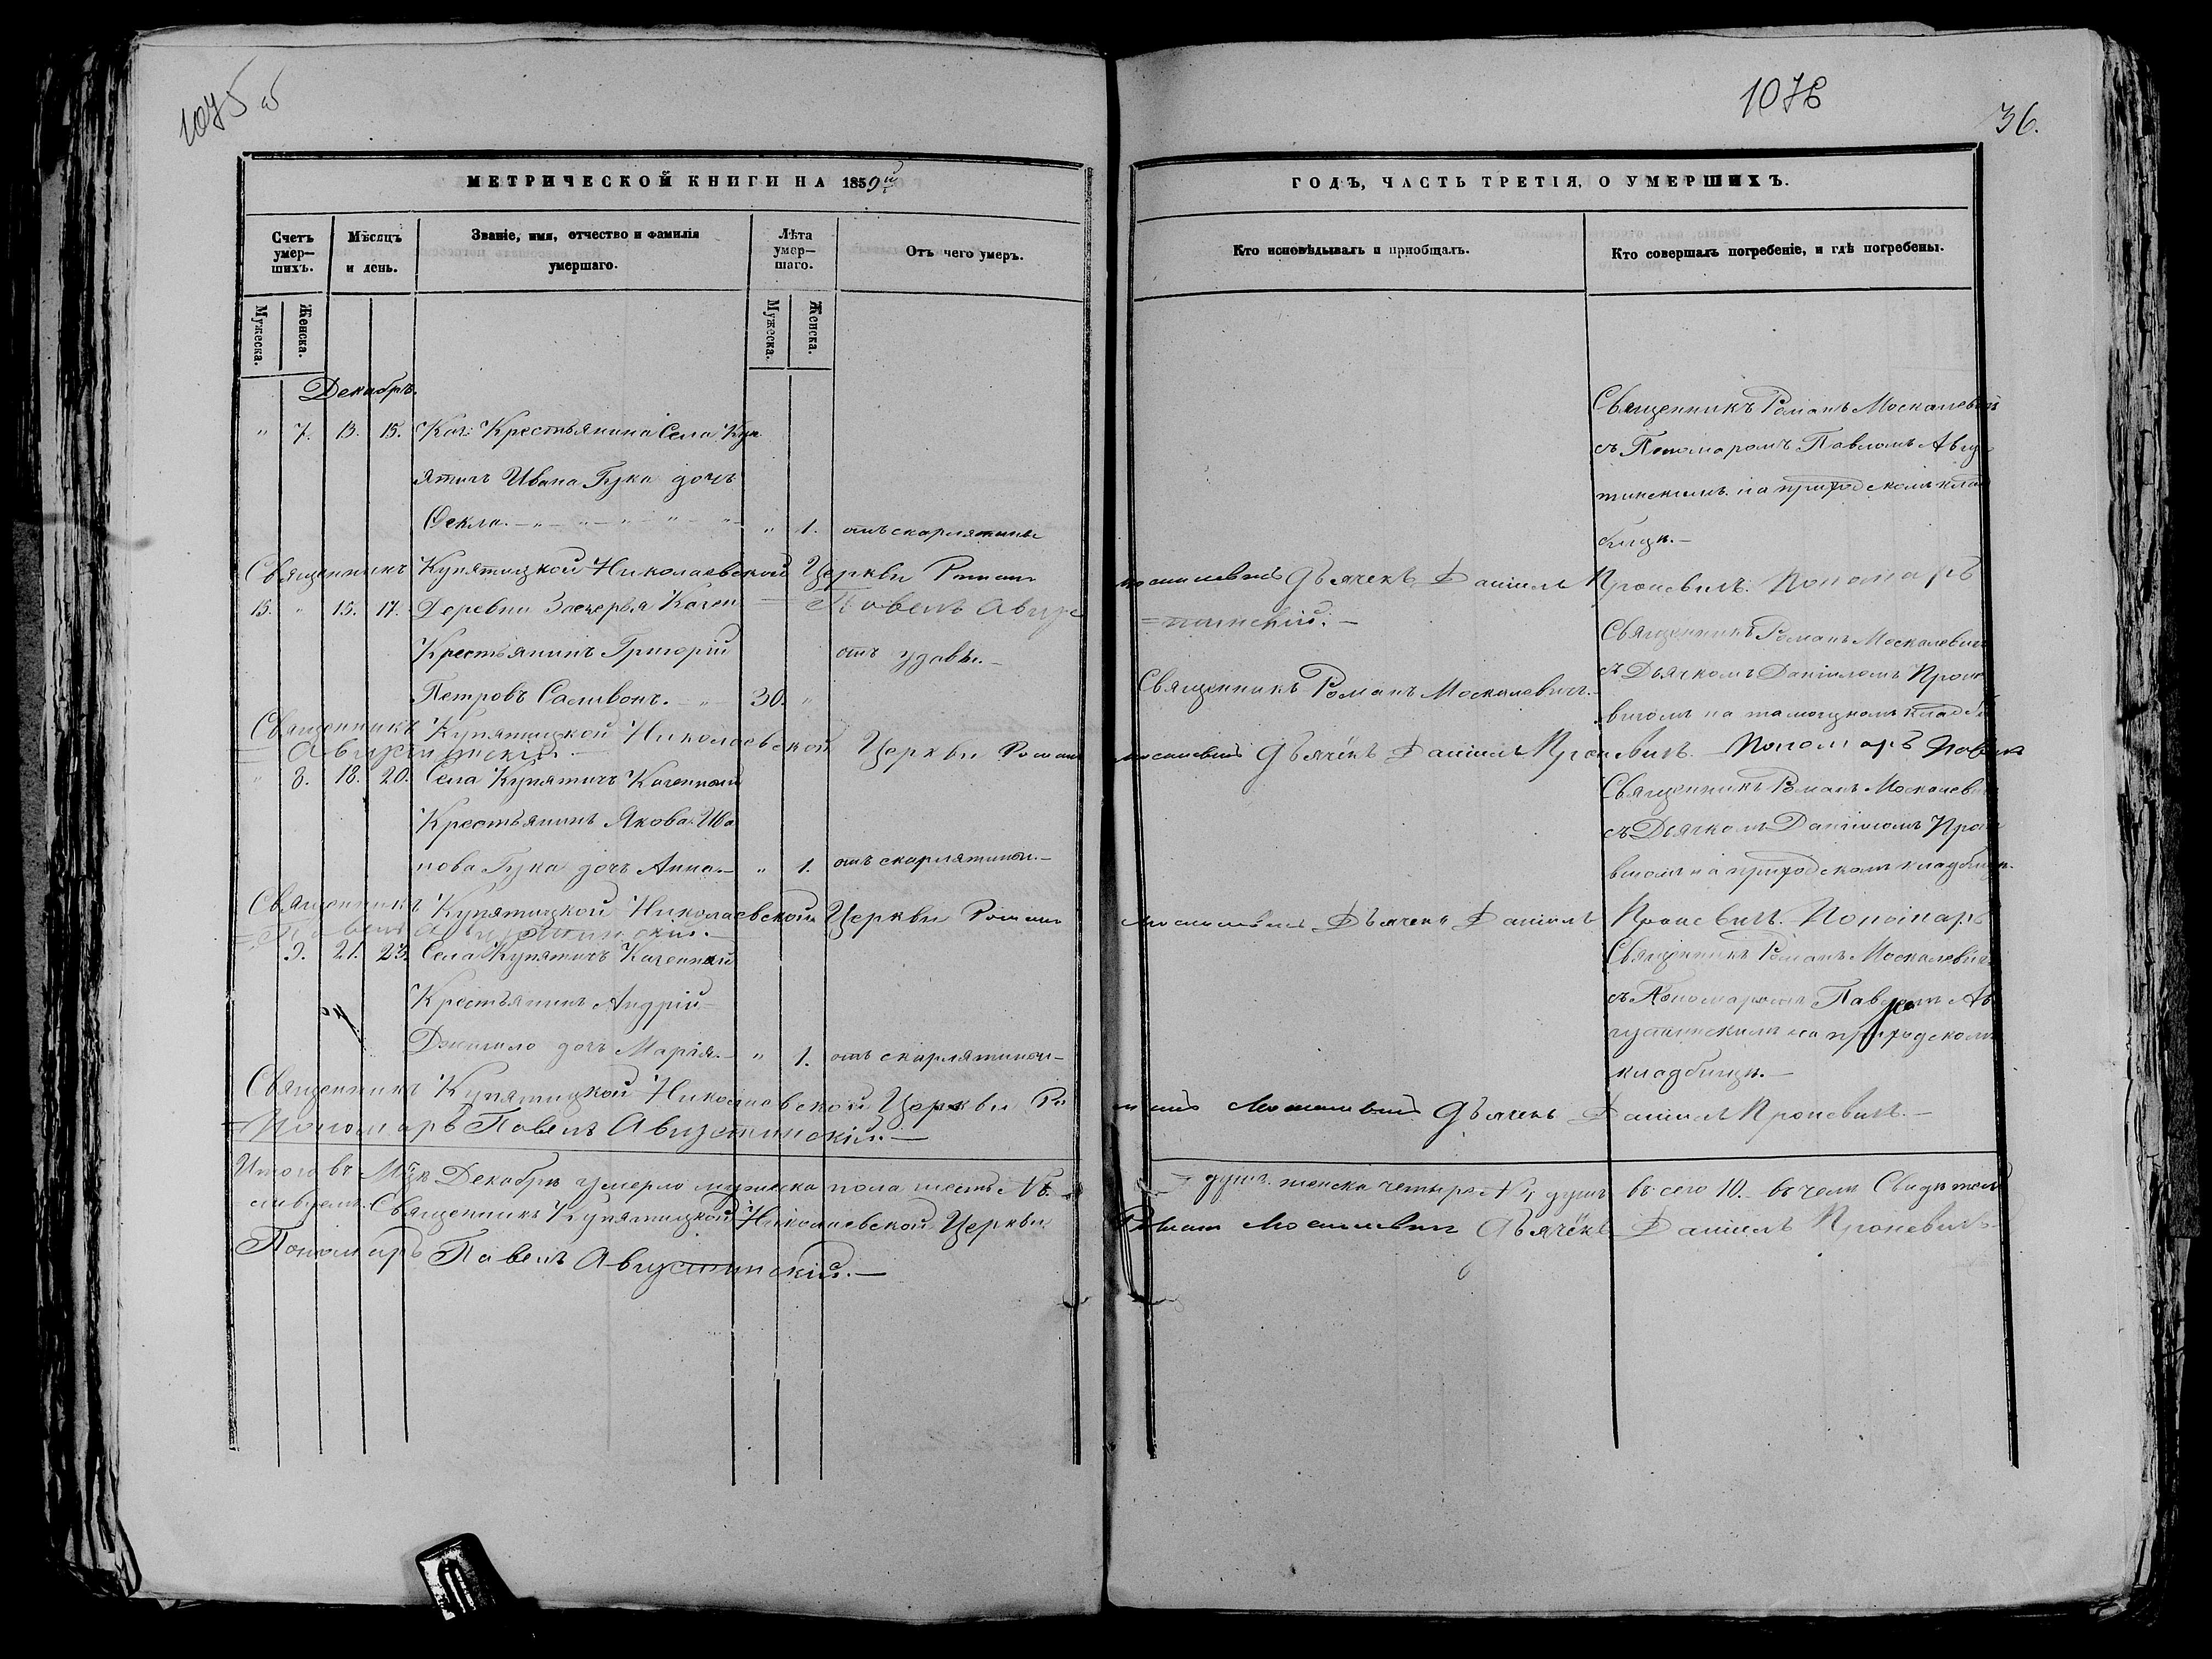 1075 об
1076
36.
МЕТРИЧЕСКОЙ КНИГИ НА 1859й
ГОДЪ, ЧАСТЬ ТРЕТІЯ, О УМЕРШИХЪ.
Счетъ умер—шихъ.
Мѣсяцъ и день.
Званіе, имя, отчество и фамилія умершаго.
Лѣта умер—шаго.
Отъ чего умеръ.
Кто исповѣдывалъ и пріобщалъ.
Кто совершалъ погребеніе, и гдѣ погребены.
Мужеска.
Женска.
Мужеска.
Женска.
Декабрь.
" 7. 13. 15. Каз: Крестьянина Села Куп
ятичъ Ивана Гука дочь
Ѳекла. " 1. отъ скарлятины
Священникъ Романъ Москалевичъ
съ Пономаромъ Павломъ Авгу
тинскимъ на приходскомъ клад
бищѣ.—
Священникъ Купятицкой Николаевской Церкви Романъ Москалевичъ Дьячекъ Даніилъ Проневичъ. Пономарь
Павелъ Авгус
=тинскій.—
15. " 15. 17. Деревни Казен
Крестьянинъ Григорій отъ удавы.—
Петровъ Саливонъ. " 30. "
Священникъ Романъ Москалевичъ.
Священникъ Романъ Москалевич
съ Дьячкомъ Даніиломъ Проне
вичомъ на тамошномъ кладб
Священникъ Купятицкой Николаевской Церкви Романъ Москалевичъ Дьячёкъ Даніилъ Проневичъ. Пономарь Павелъ
=Августинскій.—
" 8. 18. 20. Села Купятичъ Казенной
Крестьянинъ Якова Ива
нова Гука дочь Анна.— " 1. отъ скарлятины.—
Священникъ Романъ Москалевич
съ Дьячкомъ Даніиломъ Проне
вичомъ на приходскомъ кладбищѣ.
Священникъ Купятицкой Николаевской Церкви Романъ Москалевичъ Дьячекъ Даніилъ Проневичъ. Пономарь
=Павелъ Августинскій.—
" 9. 21. 23. Села Купятичъ Казенной
Крестьянинъ Андрій
дочь Марія.— " 1. отъ скарлятины—
Священникъ Романъ Москалевич
съ Пономаромъ Павломъ Ав
густинскимъ на приходскомъ
кладбищѣ.—
Священникъ Купятицкой Николаевской Церкви Романъ Москалевичъ Дьячекъ Даніилъ Проневичъ.—
=Пономарь Павелъ Августинскій.—
Итого въ Мцѣ Декабрѣ умерло мужеска пола шесть №6. душъ женска четыре №4 душъ всего 10.— въ чемъ Свидѣтель
ствуемъ. Священникъ Купятицкой Николаевской Церкви Романъ Москалевич Дьячёкъ Даніилъ Проневичъ
Пономарь Павелъ Августинскій.—